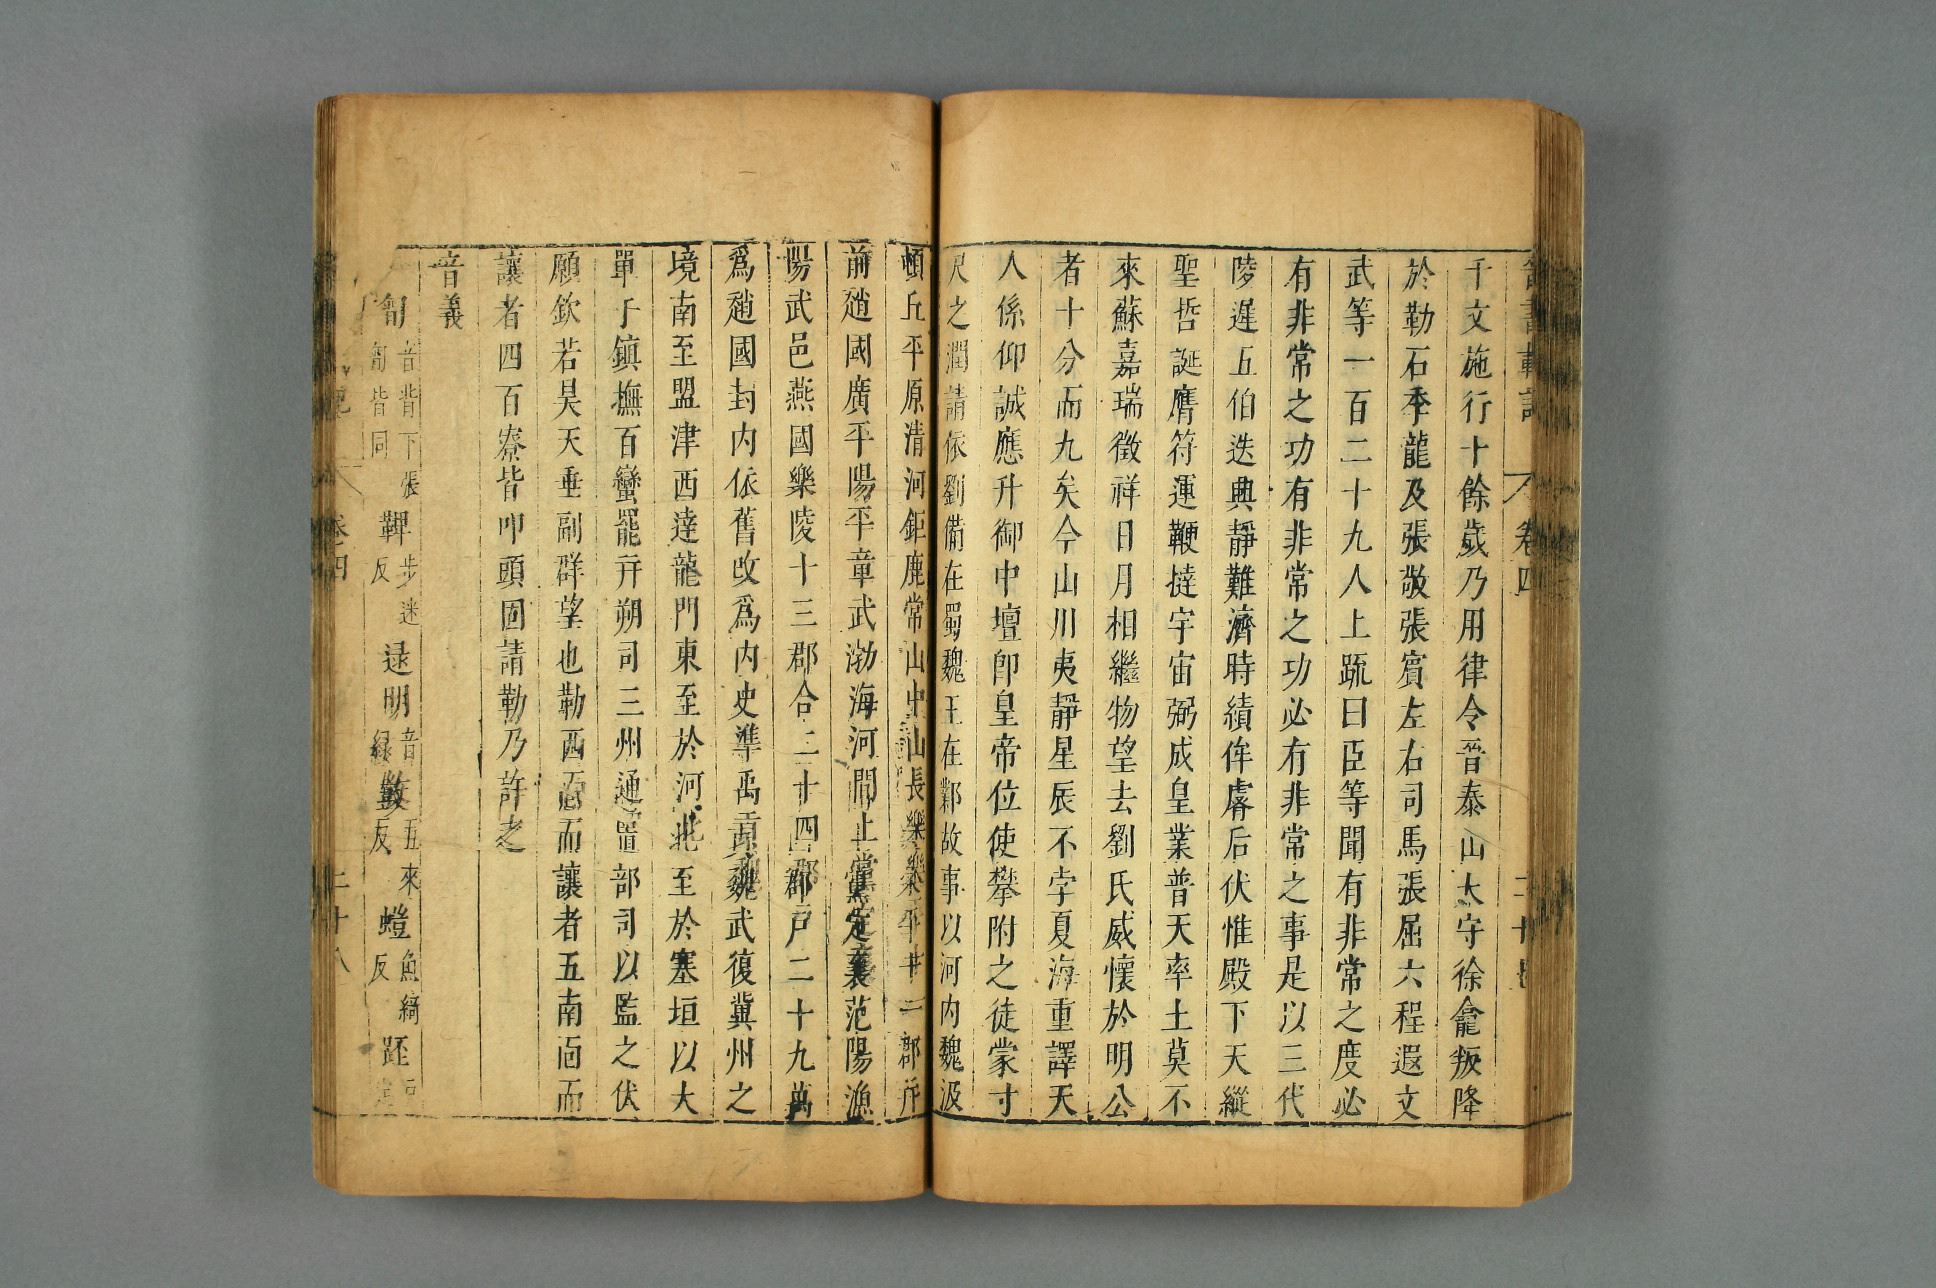 晉書載記 卷四
千文施行十餘歲乃用律令晉泰山太守徐龕叛降
於勒石季龍及張敬張賓左右司馬張屈六程遐文
武等一百二十九人上疏曰臣等聞有非常之度必
有非常之功有非常之功必有非常之事是以三代
陵遲五伯迭興靜難濟時績侔睿后伏惟殿下天縱
聖哲誕膺符運鞭撻宇宙弼成皇業普天率土莫不
來蘇嘉瑞徵祥日月相繼物望去劉氏威懷於明公
者十分而九矣今山川夷靜星辰不孛夏海重譯天
人係仰誠應升御中壇即皇帝位使攀附之徒蒙寸
尺之潤請依劉備在蜀魏王在鄴故事以河內魏汲
頓丘平原清河鉅鹿常山中山長樂樂平十一郡并
前趙國廣平陽平章武渤海河間上黨定襄范陽漁
陽武邑燕國樂陵十三郡合二十四郡戶二十九萬
爲趙國封內依舊改爲內史準禹貢魏武復冀州之
境南至盟津西達龍門東至於河北至於塞垣以大
單于鎮撫百蠻罷并朔司三州通置部司以監之伏
願欽若昊天垂副群望也勒西面而讓者五南面而
讓者四百寮皆叩頭固請勒乃許之
音義
㔨音背下張㔨皆同 鞞步迷反 逯明音綠 敳五來反 螘魚綺反 跮
卷四 二十八